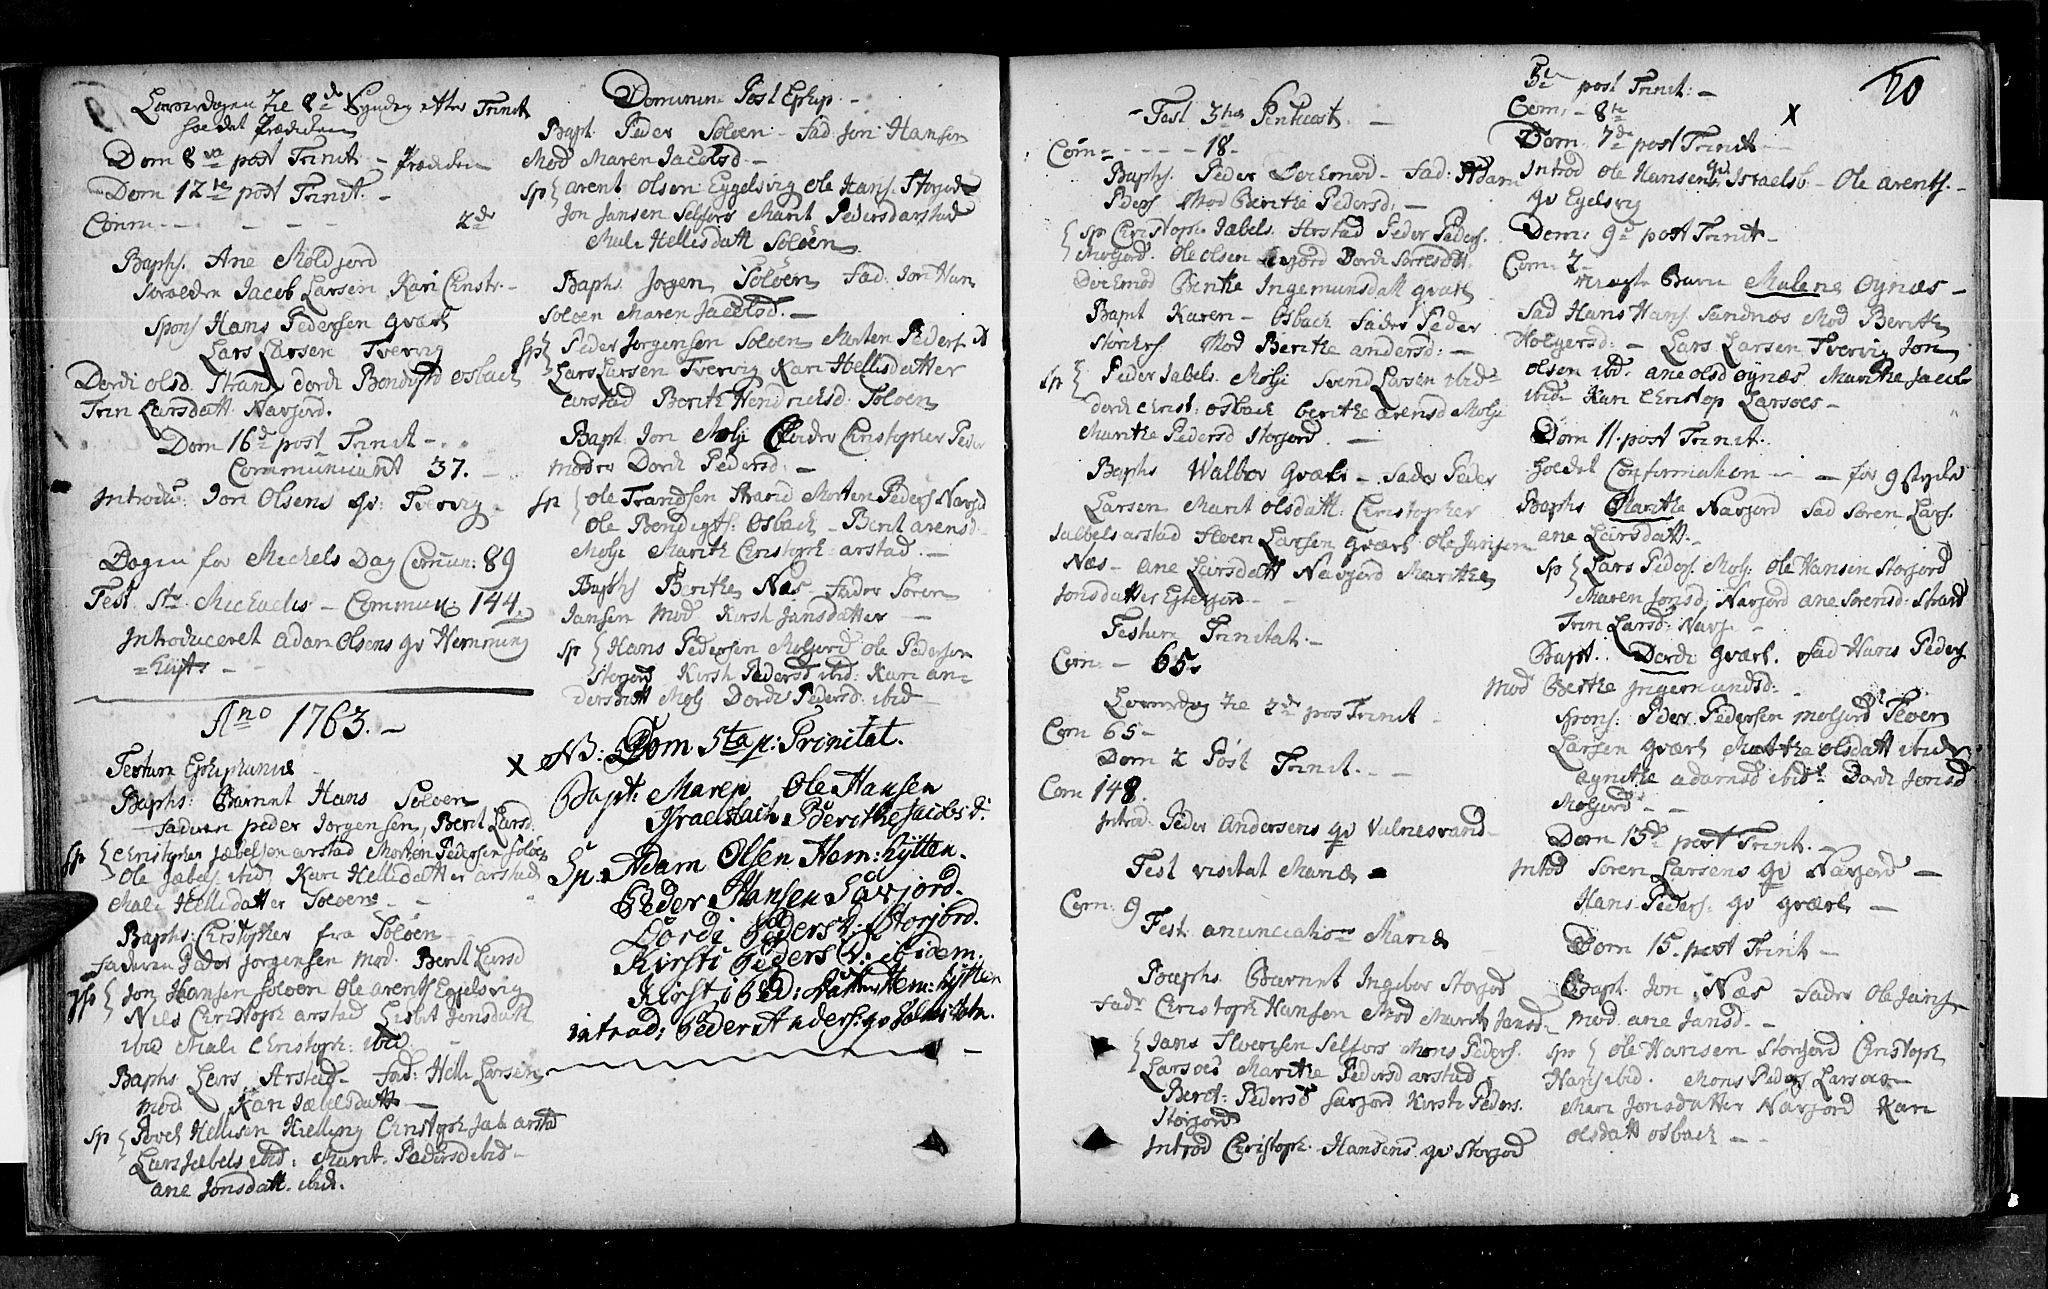 Løverdagen 7de 8de Syndag efter Trinit
holdet Prædiken
Dom 8va post Trinit - Prædiken
Dom 12te post Trinit: -
Comm - - - - - 2de
Baphs. Ane Moldjord
Forælder Jacob Larsen, Kari Christ: -
Spons Hans Pedersen Qvæl
Lars Larsen Tvervig
Dordi olsd. Strand, dordi Bendigtsd Osbach
Trin Larsdatt: Navjord.
Dom 16de post Trinit -
Communicant 37. -
Introdu: Jon Olsens qv: Tvervig -
Dagen for Michels Dag Commun: 89
Fest Sti Michaelis - Commun: 144.
Introduceret Adam Olsens qv Hemming
= hyt -
Ano 1763. -
Festum Epiphaniæ
Baphs: Barnet Hans Soløen
Faderen peder Jørgensen, Berit Larsd.
Sp Christopher Jæbelsen arstad Morten Pedersen Soløen
Ole Jæbels. ibid. Kari Hellisdatter arstad
Mali Hellisdatter Soløen -
Baphs: Christopher fra Soløen
Faderen Peder Jørgensen Mod: Berit Larsd
Sp Jon Hansen Soløen Ole arents Egelsvig
Nils Christoph arstad Lisbet Jonsdatt
ibid Mali Christoph: ibid
Baphs Lars Arstad - Fad: Helle Larsen
Mod Kari Jæbelsdatt -
Sp Povel Hellisen Kielling Christoph Jæb arstad
Lars Jæbels ibid. Marit Pedersd ibid -
ane Jonsdatt ibid.
Dominica Post Epiph. -
Bapt Peder Soløen - Fad: Jon Hansen
Mod Maren Jacobsd -
Sp arent Olsen Eygelsvig Ole Hans. Storjord
Jon Jansen Selfors Marit Pedersd arstad
Mali Hellisdatt Soløen
Baphs Jørgen Soløen Fad Jon Han
Soløen Maren Jacobsd. -
Sp Peder Jørgensen Soløen Morten Peders. ib
Lars Larsen Tvervig Kari Hellisdatter
arstad Berith Hendrichsd: Soløen
Bapt Jon Molji Fader Christopher Peder
Moder Dordi Pedersd: -
Sp Ole Trandsen Strand Morten Peders Navjord
Ole Bendigts: Osbach - Berit arensd.
Molji Marith Christoph: arstad. -
Baphs Berithe Næs - Fader Søren
Jansen Mod Kirsti Jansdatter -
Sp Hans Pedersen Moljord Ole Pedersen
Storjord Kirsti Pedersd ibid: Kari an=
dersdatt Molj Dordi Pedersd: ibid -
X NB: Dom 5ta p: Trinitat.
Bapt: Maren Ole Hansen
Israelsbach Berithe Jacobsd:
Sp: Adam Olsen Hem: hytten.
Peder Hansen Savjord.
Dordi Pedersd: Storjord.
Kirsti Pedersd: ibidem.
Kirsti Ped: datter Hem: hytten
introd: Peder Anders: qv
Fest 3tius Pentecost. -
Com - - - - 18.
Baphs. Peder Dochmod - Fad: Adam
Peders Mod Berithe Pedersd: -
Sp Christoph: Jæbels. Arstad Peder Peders.
Moljord. Ole Olsen Dordi Sørensdatt
Dochmod Berithe Ingemunsdatt qvæl
Bapt Karen - Osbach Fader Peder
Mod Berithe andersd: -
Sp Peder Jabels. Molji Svend Larsen ibid
dordi christ: Osbach berithe arensd Molji
Marithe Pedersd Storjord. -
Baphs Walbor Qvæl - Fader Peder
Larsen Marit Olsdatt. Christopher
Jabels arstad Iver Larsen qvæl Ole Jansen
Næs - ane Larsdatt Navjord Marithe
Jonsdatter
Festum Trinitat. -
Com: - 65.
Løverdag 7de 2de pos Trinit -
Com 65 -
Dom 2 Post Trinit. -
Com 148.
Introd: Peder Andersens qv Valnesvand -
Fest visitat Mariæ -
Com: 9
Fest anunciation Mariæ
Baphs Barnet Ingebor Storjord
Fadr Christoph Hansen Mod Marit Jansd.
Jans Iversen Selfors Mons Peders.
Larsoes Marithe Pedersd arstad
Berit Pedersd savjord Kirsti Peders.
Storjord
Introd Christoph. Hansens qv Storjord
20
5te post Trinit: - X
Com. - 8te
Dom: 7de post Trinit -
Introd Ole Hansens qv Israelsb. - Ole arents. -
qv Egelsvig
Dom: 9de post Trinit -
Com: 2.
Barn Malene Oynæs -
Fad Hans Hans. Sandnæs Mod Berith
Holgersd: - Lars Larsen Tvervig Jon
Olsen ibid. ane Olsd Oynæs. Marithe Jacob
ibid Kari Christop Larsoes -
Dom 11. post Trinit.
holdet Confirmation - - for 9
Baphs Marithe Navjord Fad Søren Lars.
ane Larsdatt. -
Sp Lars Peders. Molj: Ole Hansen Storjord
Maren Jonsd, Navjord ane Sørensd: Strand
Trin Larsd: Navj. -
Bapt. Dordi qværl. Fad Hans Peders
Mod Berithe Ingemundsd: -
Spons: Peder Pedersen Moljord Iver
Larsen qværl Marithe Olsdatt ibid
agnithe adamsd ibid. Dordi Jonsd
Moljord -
Dom 13de post Trinit. -
Intod Søren Larsens qv Navjord -
Hans Peders: qv qværl -
Dom 15. post Trinit -
Bapt. Jon Næs Fader Ole Jans.
Mod ane Jansd. -
Sp Ole Hansen Storjord Christoph
Hans ibid. Mons Peders Larsoes -
Mari Jonsdatter Navjord Kari
Olsdatt Osbach - -